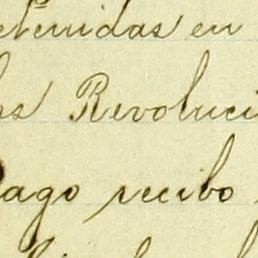 etenidas en
os Revoluci
Pago recibo